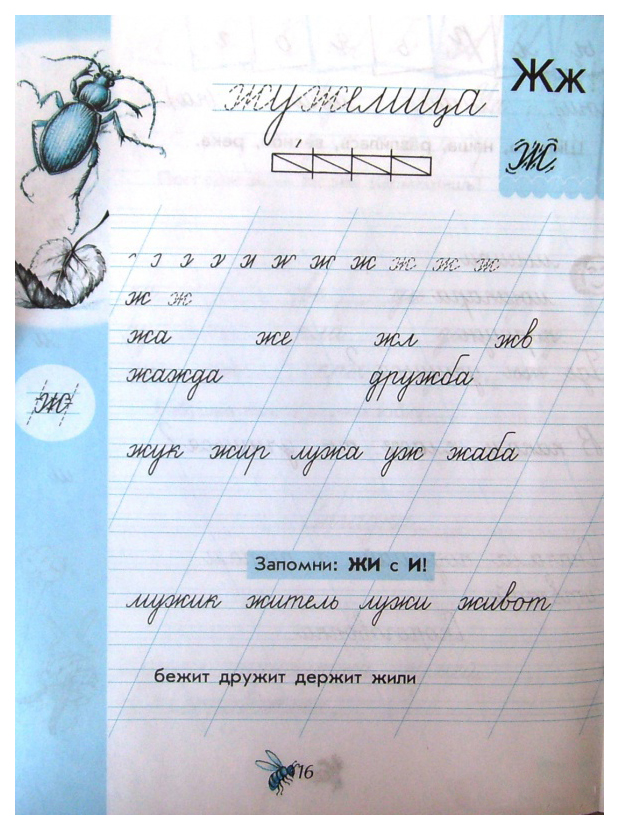 Жж
жужелица
ж
ж ж ж ж ж ж
ж ж
жа же жл жв
жажда дружба
ж
жук жир лужа уж жаба
Запомни: ЖИ с И!
мужик житель лужи живот
бежит дружит держит жили
16